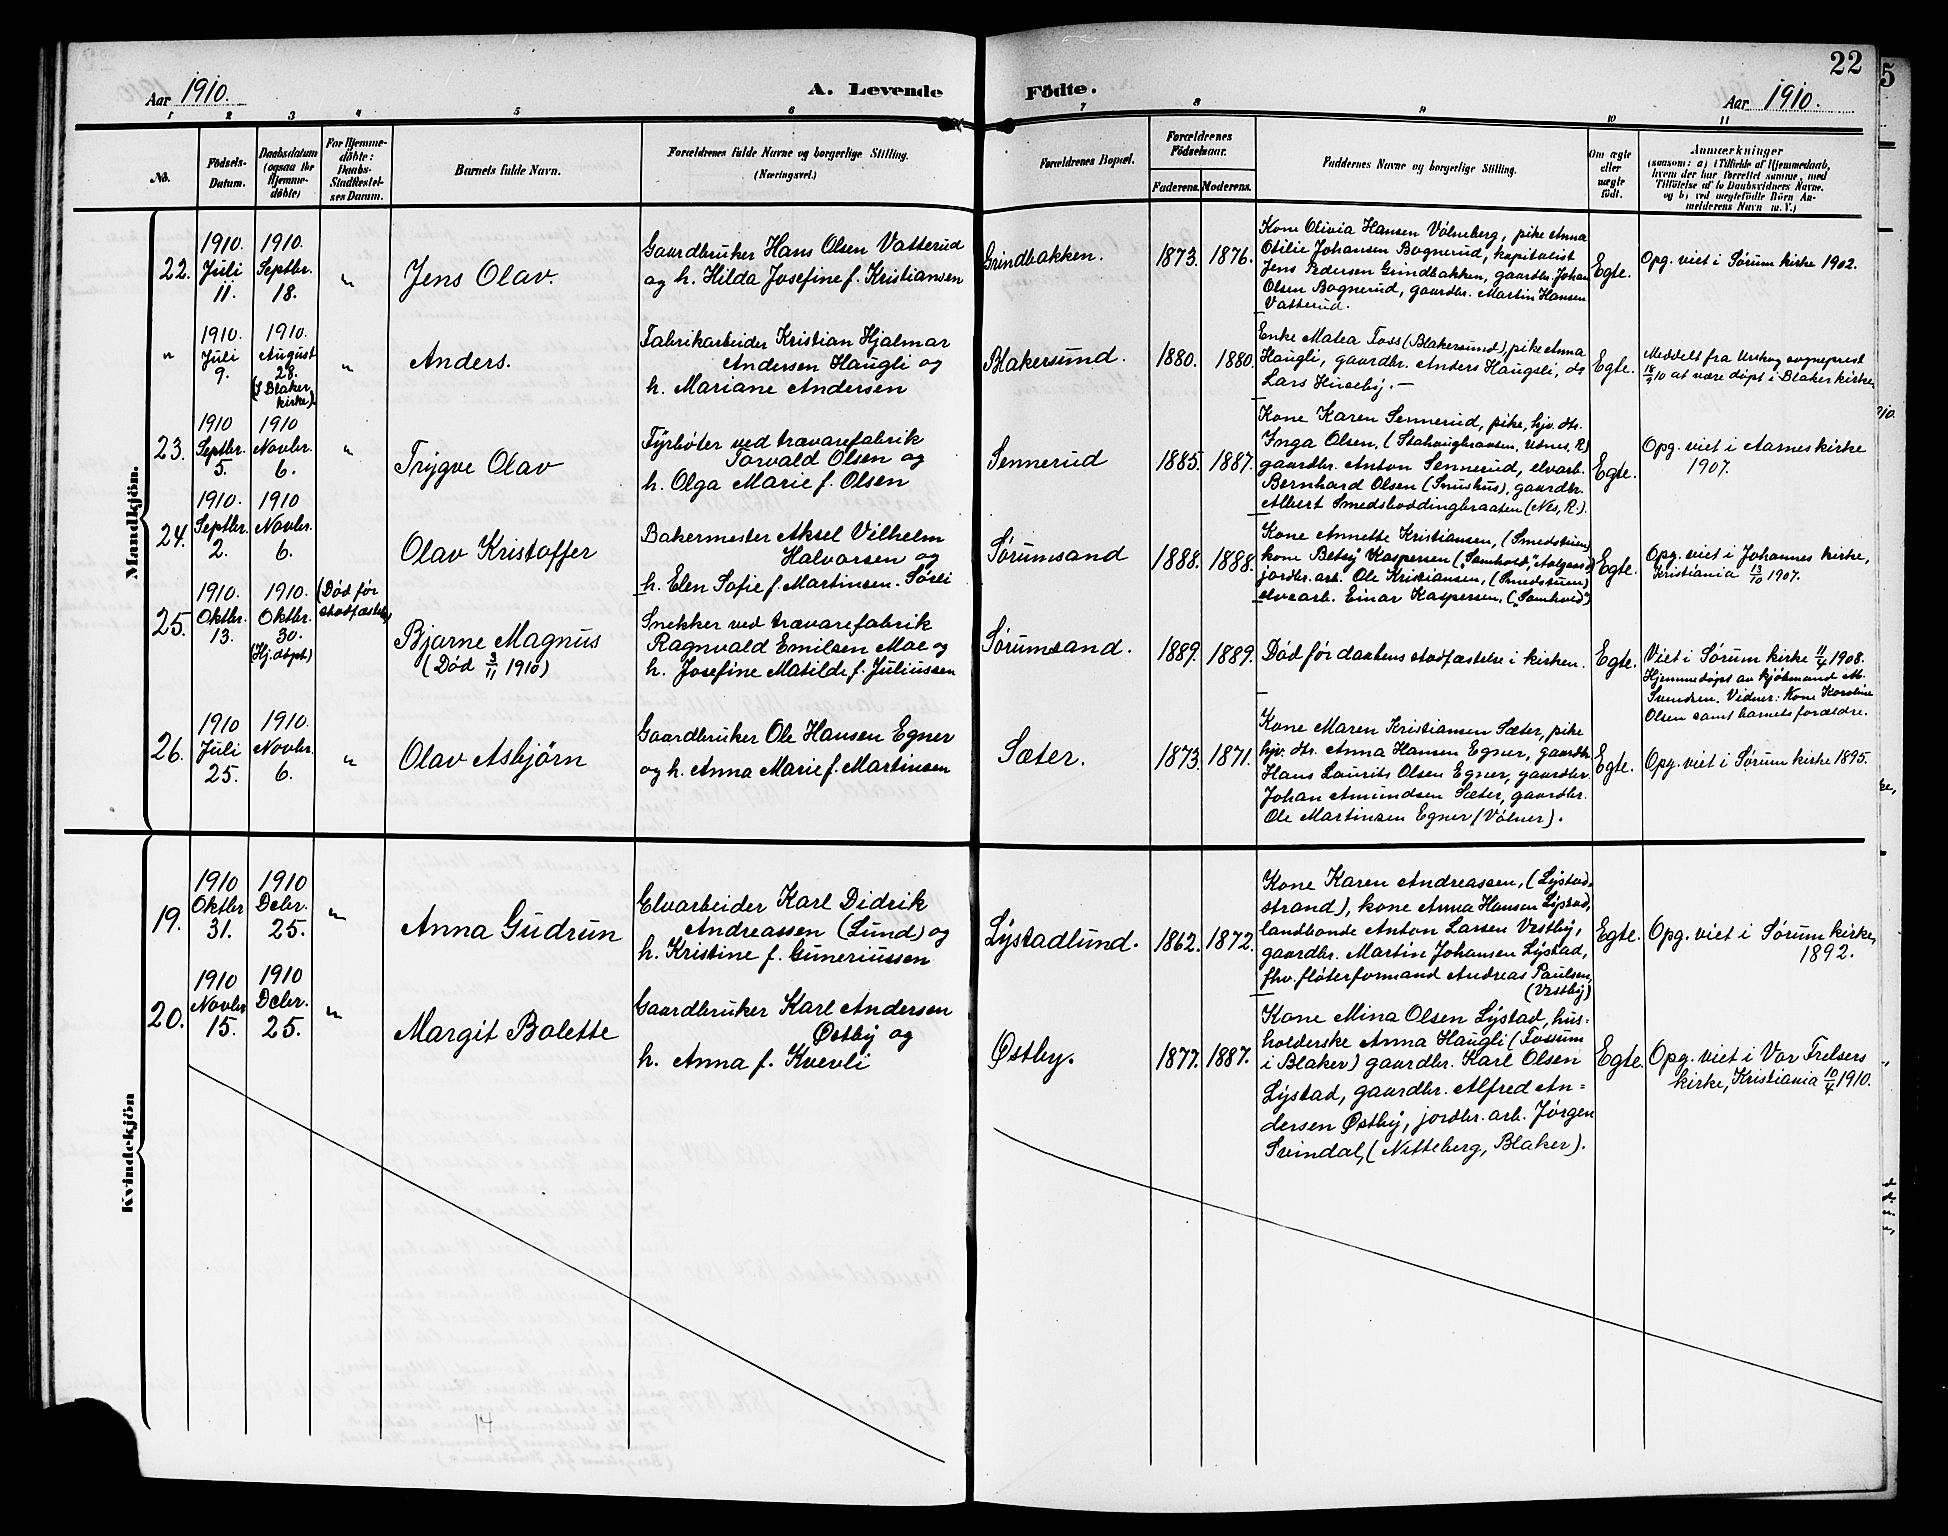 22
Aar 1910.
A. Levende
Födte.
Aar 1910.
1 2 3 4 5 6 7 8 9 10 11
No.
Födsels-
Datum.
Daabsdatum
(ogsaa for
Hjemme-
döbte)
For Hjemme-
döbte:
Daabs-
Stadfæstel-
ses Datum.
Barnets fulde Navn.
Forældrenes fulde Navne og borgerlige Stilling.
(Næringsvei.)
Forældrenes Bopæl.
Forældrenes
Födselsaar.
Faderens.
Moderens.
Faddernes Navne og borgerlige Stilling.
Om ægte
eller
uægte
födt.
Anmærkninger
(saasom: a) i Tilfælde af Hjemmedaab,
hvem der har forrettet samme, med
Tilföielse af to Daabsvidners Navne.
og b) ved uegtefödte Börn An-
melderens Navn m. V.)
Mandkjön.
22.
1910.
Juli
11.
1910.
Septbr.
18.
"
Jens Olav.
Gaardbruker Hans Olsen Vatterud
og h. Hilda Josefine f. Kristiansen
Grindbakken.
1873.
1876.
Kone Olivia Hansen Vølneberg, pike Anna
Otilie Johansen Bognerud, kapitalist
Jens Pedersen Grindbakken, gaardbr. Johan
Olsen Bognerud, gaardbr. Martin Hansen
Vatterud.
Egte.
Opg. viet i Sørum kirke 1902.
"
1910.
Juli
9.
1910.
August
28.
(I Blaker
kirke).
"
Anders.
Fabrikarbeider Kristian Hjalmar
Andersen Haugli og
h. Mariane Andersen
Blakersund.
1880.
1880.
Enke Malea Foss (Blakersund), pike Anna
Haugli, gaardbr. Anders Haugsli, do
Lars Huseby. —
Egte.
Meddelt fra Urskog sogneprest
18/9 10 at være døpt i Blaker kirke.
23.
1910
Septbr.
5.
1910
Novbr.
6.
"
Trygve Olav
Fyrbøter ved trævarefabrik
Torvald Olsen og
h. Olga Marie f. Olsen
Sennerud
1885.
1887.
Kone Karen Sennerud, pike, hjv. dtr.
Inga Olsen, (
gaardbr. Anton Sennerud, elvarb.
Bernhard Olsen (Snushus), gaardbr.
Albert Smedsboddingbraaten (Nes, R.).
Egte.
Opg. viet i Aarnes kirke
1907.
24.
1910.
Septbr.
2.
1910
Novbr.
6.
Olav Kristoffer
Bakermester Aksel Vilhelm
Halvorsen og
h. Elen Sofie f. Martinsen-Sørli
Sørumsand
1888.
1888.
Kone Annette Kristiansen, (Smedstuen)
kone Betsy Kaspersen ("Samhold",
jordbr. arb. Ole Kristiansen, (Smedstuen)
elvearb. Einar Kaspersen, ("Samhold")
Egte.
Opg. viet i Johannes kirke,
Kristiania 13/10 1907.
25.
1910.
Oktbr.
13.
1910.
Oktbr.
30.
(Hj. døpt)
(Død før
stadfæstelse)
Bjarne Magnus
(Død 3/11 1910)
Snekker ved trævarefabrik
Ragnvald Emilsen Moe og
h. Josefine Matilde f. Juliussen
Sørumsand.
1889.
1889.
Død før daabens stadfæstelse i kirken.
Egte.
Viet i Sørum kirke 11/4 1908.
Hjemmedøpt av kjøbmand M.
Svendsen. Vidner: Kone Karoline
Olsen samt barnets forældre.
26.
1910
Juli
25.
1910.
Novbr.
6.
"
Olav Asbjørn
Gaardbruker Ole Hansen Egner
og h. Anna Marie f. Martinsen
Sæter.
1873.
1871.
Kone Maren Kristiansen Sæter, pike
hjv. dtr. Anna Hansen Egner, gaardbr.
Hans Laurits Olsen Egner, gaardbr.
Johan Amundsen Sæter, gaardbr.
Ole Martinsen Egner (Vølner).
Egte.
Opg. viet i Sørum kirke 1895.
Kvindekjön
19.
1910
Oktbr
31.
1910
Decbr.
25.
"
Anna Gudrun
Elvarbeider Karl Didrik
Andreassen (Lund) og
h. Kristine f. Guneriussen
Lystadlund.
1862.
1872.
Kone Karen Andreassen, (Lystad-
strand), kone Anna Hansen Lystad,
landbonde Anton Larsen Vestby,
gaardbr. Martin Johansen Lystad,
fhv. fløterformand Andreas Paulsen,
(Vestby)
Egte.
Opg. viet i Sørum kirke,
1892.
20.
1910
Novbr
15.
1910
Decbr.
25.
"
Margit Bolette
Gaardbruker Karl Andersen
Østby og
h. Anna f. Kvevli
Østby.
1877.
1887.
Kone Mina Olsen Lystad, hus-
holderske Anna Haugli (Fossum
i Blaker) gaardbr. Karl Olsen
Lystad, gaardbr. Alfred An=
dersen Østby, jordbr. arb. Jørgen
Svindal, (Nitteberg, Blaker).
Egte.
Opg. viet i Vor Frelsers
kirke, Kristiania 10/4 1910.
14